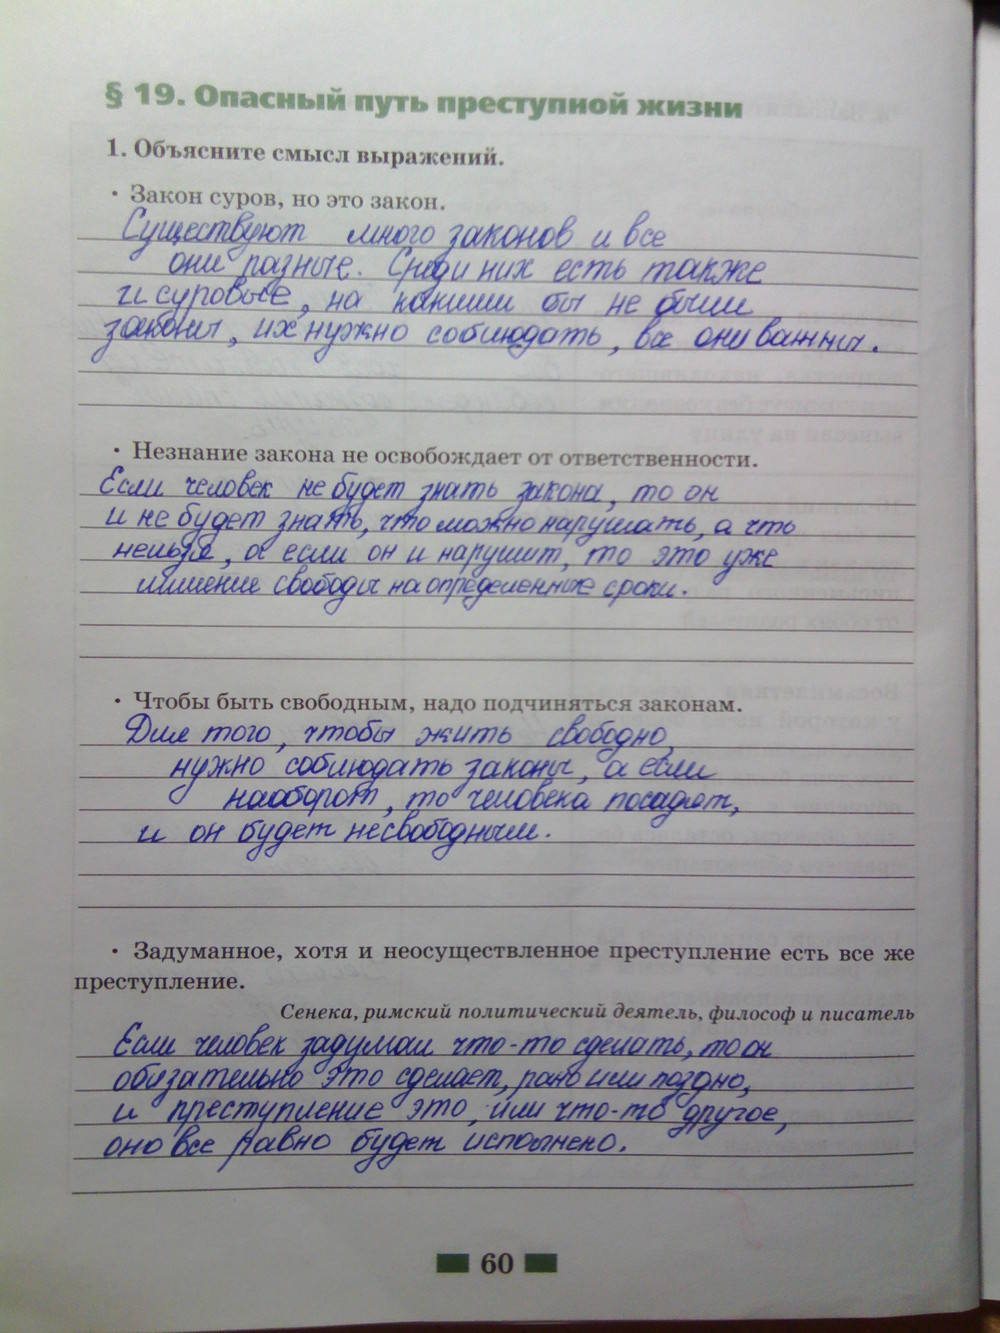 § 19. Опасный путь преступной жизни
1. Объясните смысл выражений.
· Закон суров, но это закон.
Существуют много законов и все
они разные. Среди них есть также
и суровые, но какими бы не были
законы, их нужно соблюдать, все они важны.
· Незнание закона не освобождает от ответственности.
Если человек не будет знать закона, то он
и не будет знать, что можно нарушать, а что
нельзя, а если он и нарушит, то это уже
лишение свободы на определенные сроки.
· Чтобы быть свободным, надо подчиняться законам.
Для того, чтобы жить свободно,
нужно соблюдать законы, а если
наоборот, то человека посадят,
и он будет несвободным.
· Задуманное, хотя и неосуществленное преступление есть все же
преступление.
Сенека, римский политический деятель, философ и писатель
Если человек задумал что-то сделать, то он
обязательно это сделает, рано или поздно,
и преступление это, или что-то другое,
оно все равно будет исполнено.
60